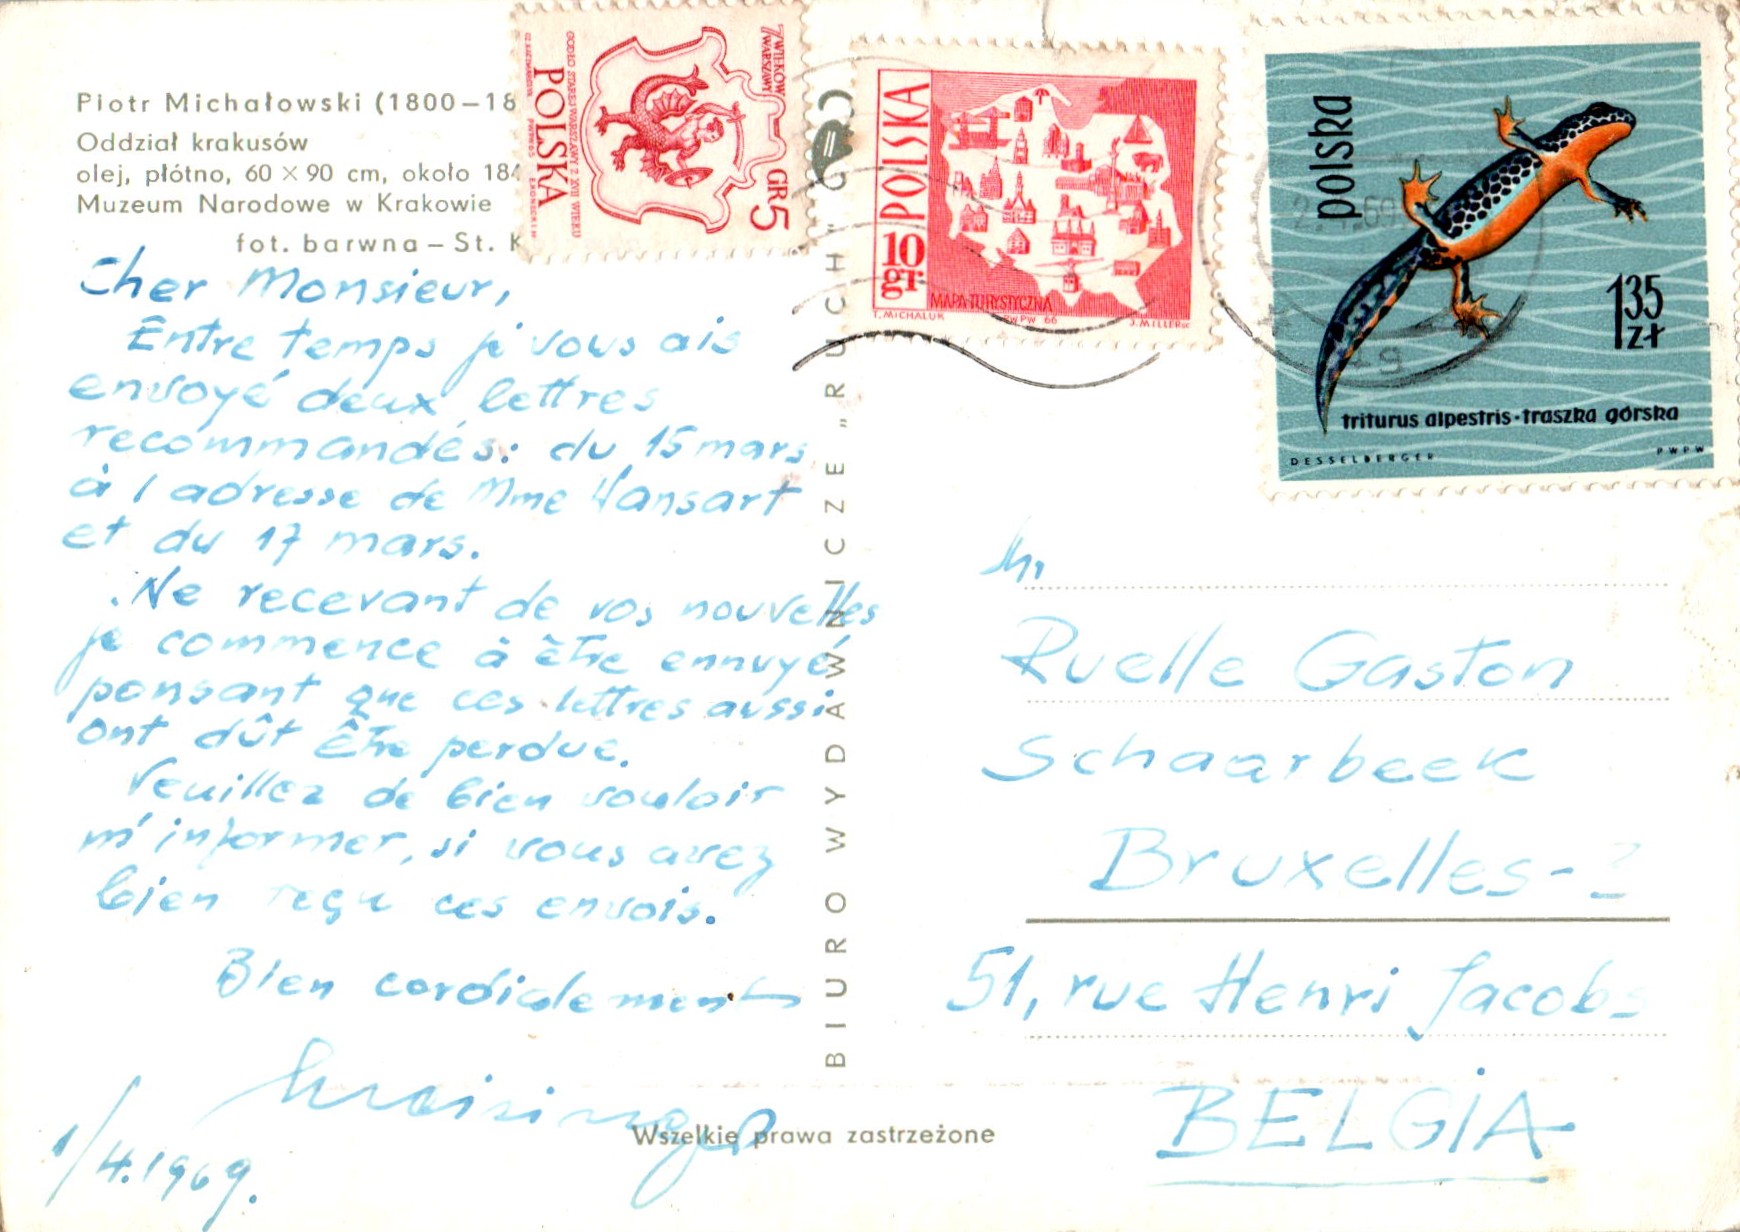 Piotr Michałowski (1800–18
Oddział krakusów
olej, płótno, 60 × 90 cm, około 184
Muzeum Narodowe w Krakowie
fot. barwna – St. K
Cher Monsieur,
Entre temps je vous ais
envoyé deux lettres
recommandés: du 15 mars
à l adresse de Mme Hansart
et du 17 mars.
Ne recevant de vos nouvelles
je commence à être ennuyé
ponsant que ces lettres aussi
ont dût être perdue.
Veuillez de bien vouloir
m'informer, si vous avez
bien reçu ces envois.
Bien cordialement
1/4.1969.
BIURO WYDAWNICZE „RUCH"
Wszelkie prawa zastrzeżone
7 WIEKÓW WARSZAWY
GODŁO STAREJ WARSZAWY Z XVII WIEKU
POLSKA
GR 5
POLSKA
10 gr
MAPA TURYSTYCZNA
T. MICHALUK PWPW 66 J. MILLER sc.
polska
1,35 zł
triturus alpestris · traszka górska
DESSELBERGER PWPW
Mr
Ruelle Gaston
Schaarbeek
Bruxelles-
51, rue Henri Jacobs
BELGIA